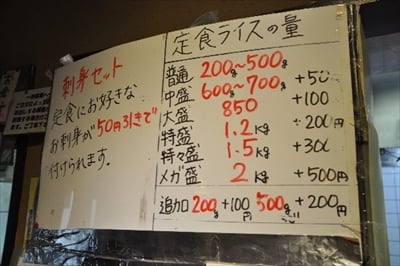 刺身セット
定食にお好きな
お刺身が50円引きで
付けられます.
定食ライスの量
普通 200g~500g
中盛 600g~700g +50
大盛 850 +100
特盛 1.2kg +200円
特々盛 1.5kg +300
メガ盛 2kg +500円
追加 200g +100円 500g +200円